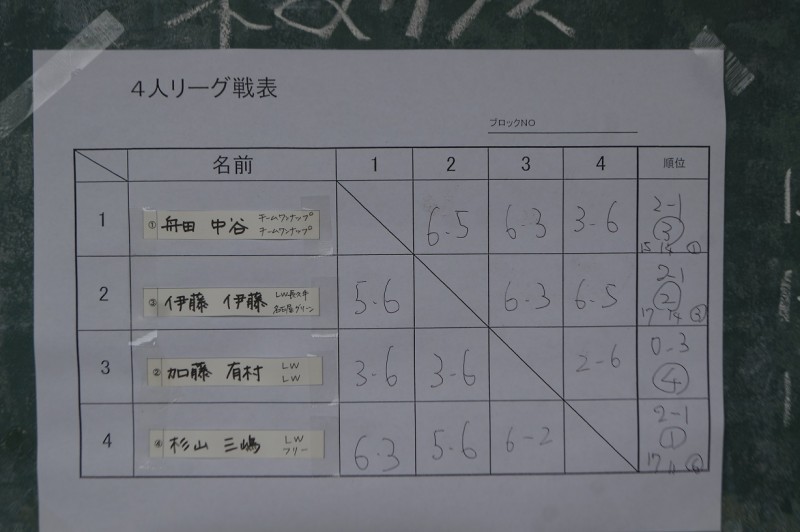 4人リーグ戦表
ブロックNO
名前 1 2 3 4 順位
1 ① 舟田 中谷 チームワンナップ チームワンナップ 6-5 6-3 3-6 2-1 ③ 15 14 ①
2 ③ 伊藤 伊藤 LW長久手 名古屋グリーン 5-6 6-3 6-5 2-1 ② 17 14 ③
3 ② 加藤 有村 LW LW 3-6 3-6 2-6 0-3 ④
4 ④ 杉山 三嶋 LW フリー 6-3 5-6 6-2 2-1 ① 17 11 ⑥